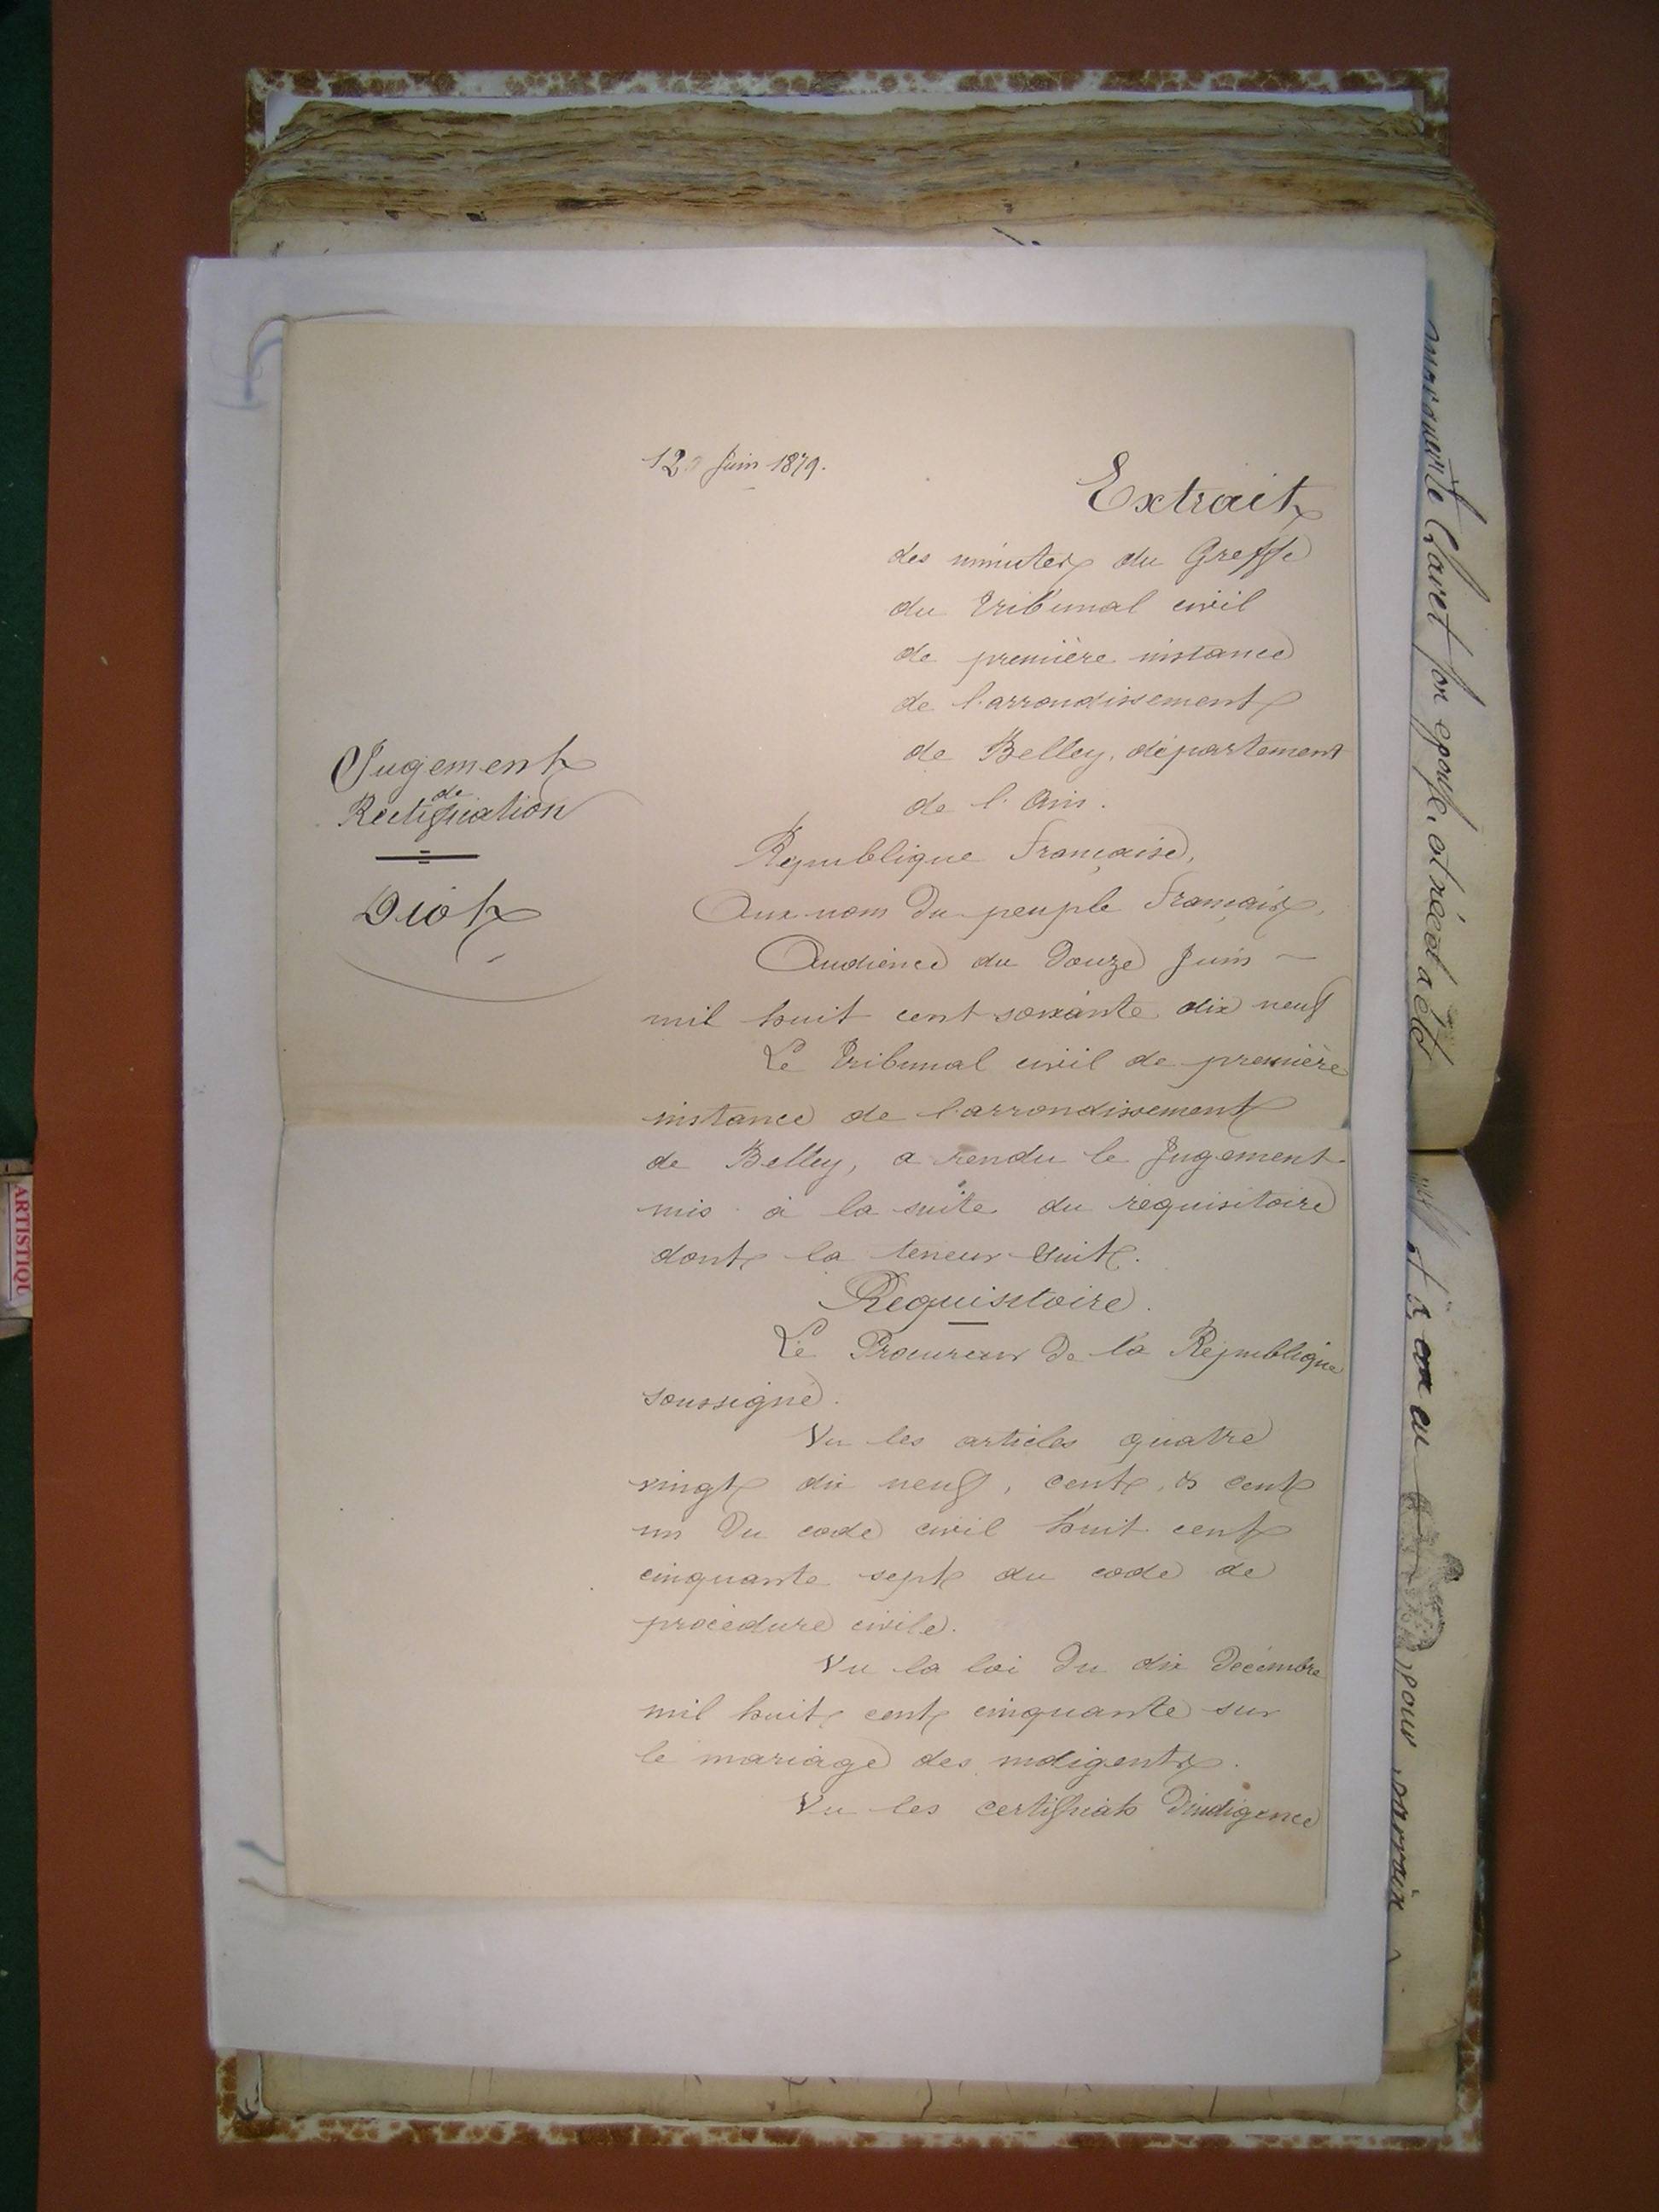 12 Juin 1879.
Extrait
des minutes du Greffe
du Tribunal civil
de première instance
de l'arrondissement
de Belley, département
de l'Ain.
Jugement
de
Rectification
Diot
République Française,
Au nom du peuple Français,
Audience du Douze Juin
mil huit cent soixante dix neuf
Le Tribunal civil de première
instance de l'arrondissement
de Belley, a rendu le Jugement
mis à la suite du réquisitoire
dont la teneur suit.
Requisitoire.
Le Procureur de la République
soussigné.
Vu les articles quatre
vingt dix neuf, cent, & cent
un du code civil huit cent
cinquante sept du code de
procédure civile.
Vu la loi du dix Décembre
mil huit cent cinquante sur
le mariage des indigents.
Vu les certificats d'indigence
ARTISTIQU
pour parrain